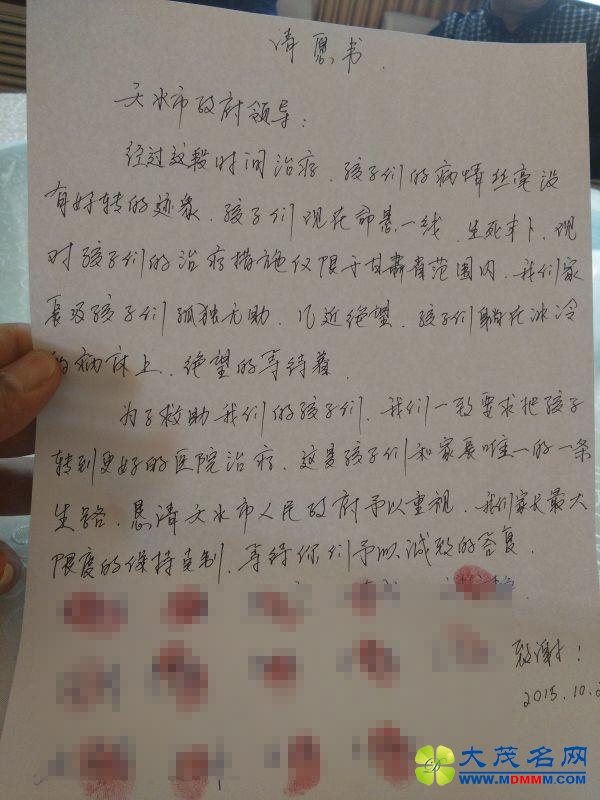 请愿书
天水市政府领导：
经过这段时间治疗，孩子们的病情丝毫没
有好转的迹象，孩子们现在命悬一线，生死未卜，现
时孩子们的治疗措施仅限于甘肃省范围内，我们家
长及孩子们孤独无助，几近绝望，孩子们躺在冰冷
的病床上，绝望的等待着
为了救助我们的孩子们，我们一致要求把孩子
转到更好的医院治疗，这是孩子们和家长唯一的一条
生路，恳请天水市人民政府予以重视，我们家长最大
限度的保持克制，等待你们予以诚致的答复。
致谢！
2015.10.2
大茂名网
WWW.MDMMM.COM